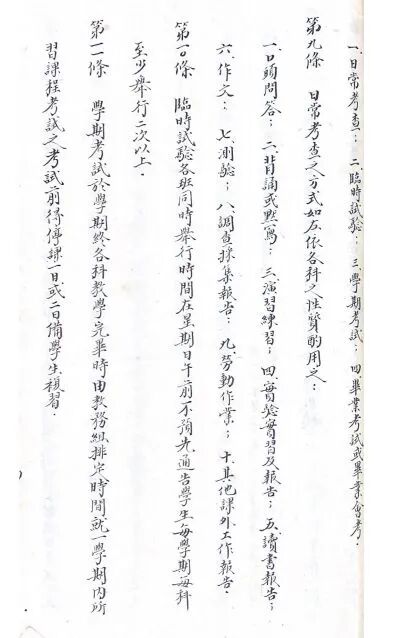 一、日常考查；二、臨時試驗；三、學期考試；四、畢業考試或畢業會考．
第九條　日常考查之方式如左依各科之性質酌用之：
一、口頭問答；二、背誦或默寫；三、演習練習；四、實驗實習及報告；五、讀書報告；
六、作文；七、測驗；八、調查採集報告；九、勞動作業；十、其他課外工作報告．
第一〇條　臨時試驗各班同時舉行時間在星期日午前不預先通告學生每學期每科
至少舉行二次以上．
第一一條　學期考試於學期終各科教學完畢時由教務組排定時間就一學期內所
習課程考試之考試前得停課一日或二日備學生複習．